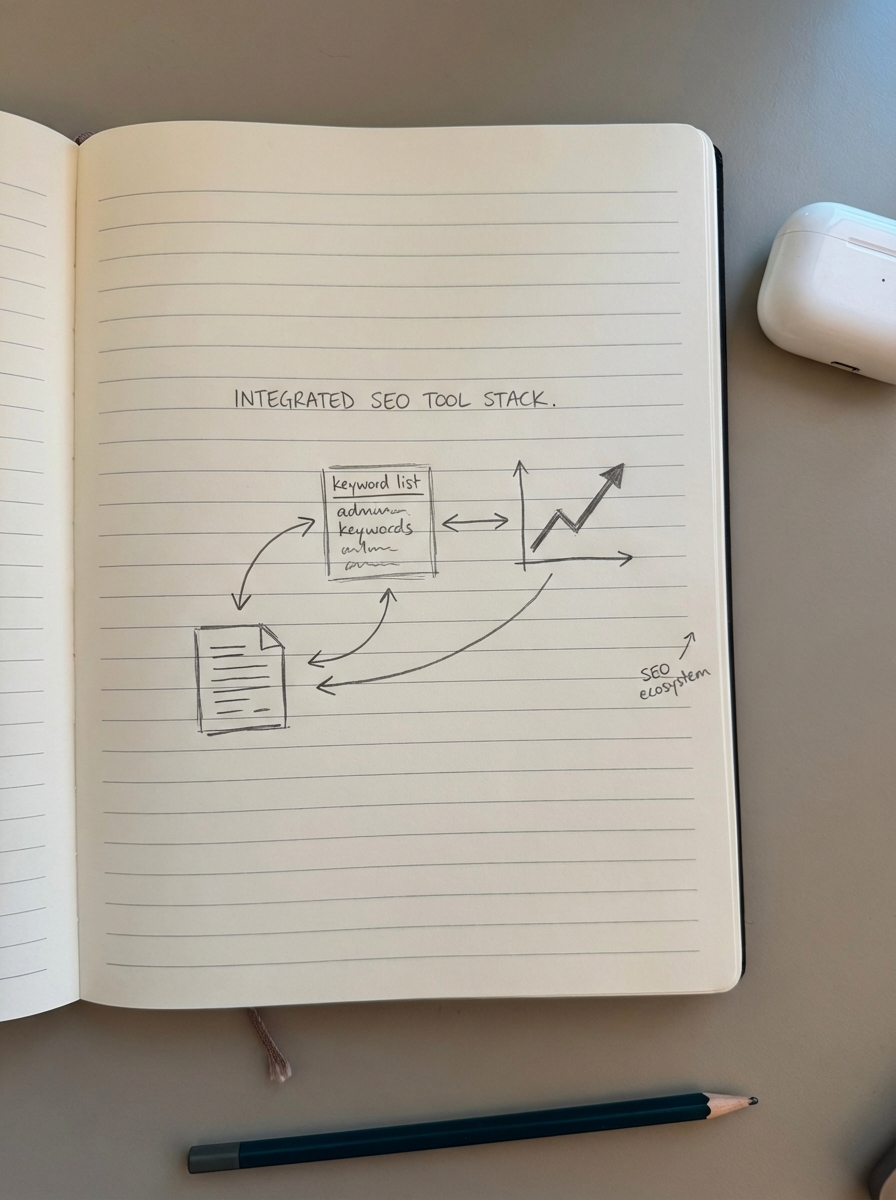 INTEGRATED SEO TOOL STACK.
keyword list
keywords
SEO
ecosystem